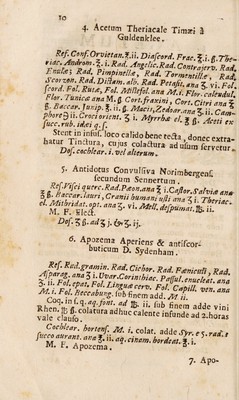 10
4. Acetum Theriacale Timæi à
Guldenklee.
Ref. Conf. Orvietan. ℥. ii. Diascord. Frac. ℥. i. ꞵ. The-
riac. Androm. ℥. i. Rad. Angelic. Rad. Contrajerv. Rad.
Enulæ; Rad. Pimpinellæ, Rad. Tormentillæ, Rad.
Scorzon. Rad. Dictam. alb. Rad. Petasit. ana ℥. vi. Fol.
scord. Fol. Rutæ, Fol. Millefol. ana M. i. Flor. calendul.
Flor. Tunicæ ana M. ꞵ. Cort. fraxini, Cort. Citri ana ℥
ꞵ. Baccar. Junip. ℥. i. ꞵ. Macis, Zedoar. ana ʒ. ii. Cam-
phoræ ℈ ii. Croci orient. ʒ. i. Myrrhæ el. ℥ ꞵ. Aceti ex
succ. rub. idæi q. s.
Stent in infus. loco calido bene tecta, donec extra-
hatur Tinctura, cujus colactura ad usum servetur.
Dos. cochlear. i. vel alterum.
5. Antidotus Convulsiva Norimbergens.
secundum Sennertum.
Ref. Visci querc. Rad. Pæon. ana ʒ i. Castor. Salviæ ana
ʒ ꞵ. Baccar. lauri, Cranii humani usti ana ʒ i. Theriac.
et Mithridat. opt. ana ʒ. vi. Mell. despumat. ℔. ii.
M. F. Elect.
Dos. ʒ ꞵ. ad ʒ j. & ʒ. ij.
6. Apozema Aperiens & antiscor-
buticum D. Sydenham.
Ref. Rad. gramin. Rad. Cichor. Rad. Fœniculi, Rad.
Asparag. ana ℥ i. Uvar. Corinthiac. Passul. enucleat. ana
℥. ii. Fol. epat. Fol. Linguæ cerv. Fol. Capill. ven. ana
M. i. Fol. Beccabung. sub finem add. M. ii.
Coq. in s. q. aq. font. ad ℔. ii. sub finem adde vini
Rhen. ℔ ꞵ. colatura adhuc calente infunde ad 2. horas
vale clauso.
Cochlear. hortens. M. i. colat. adde Syr. e 5. rad. e
succo aurant. ana ℥. ii. aq. cinam. hordeat. ℥. i.
M. F. Apozema.
7. Apo-